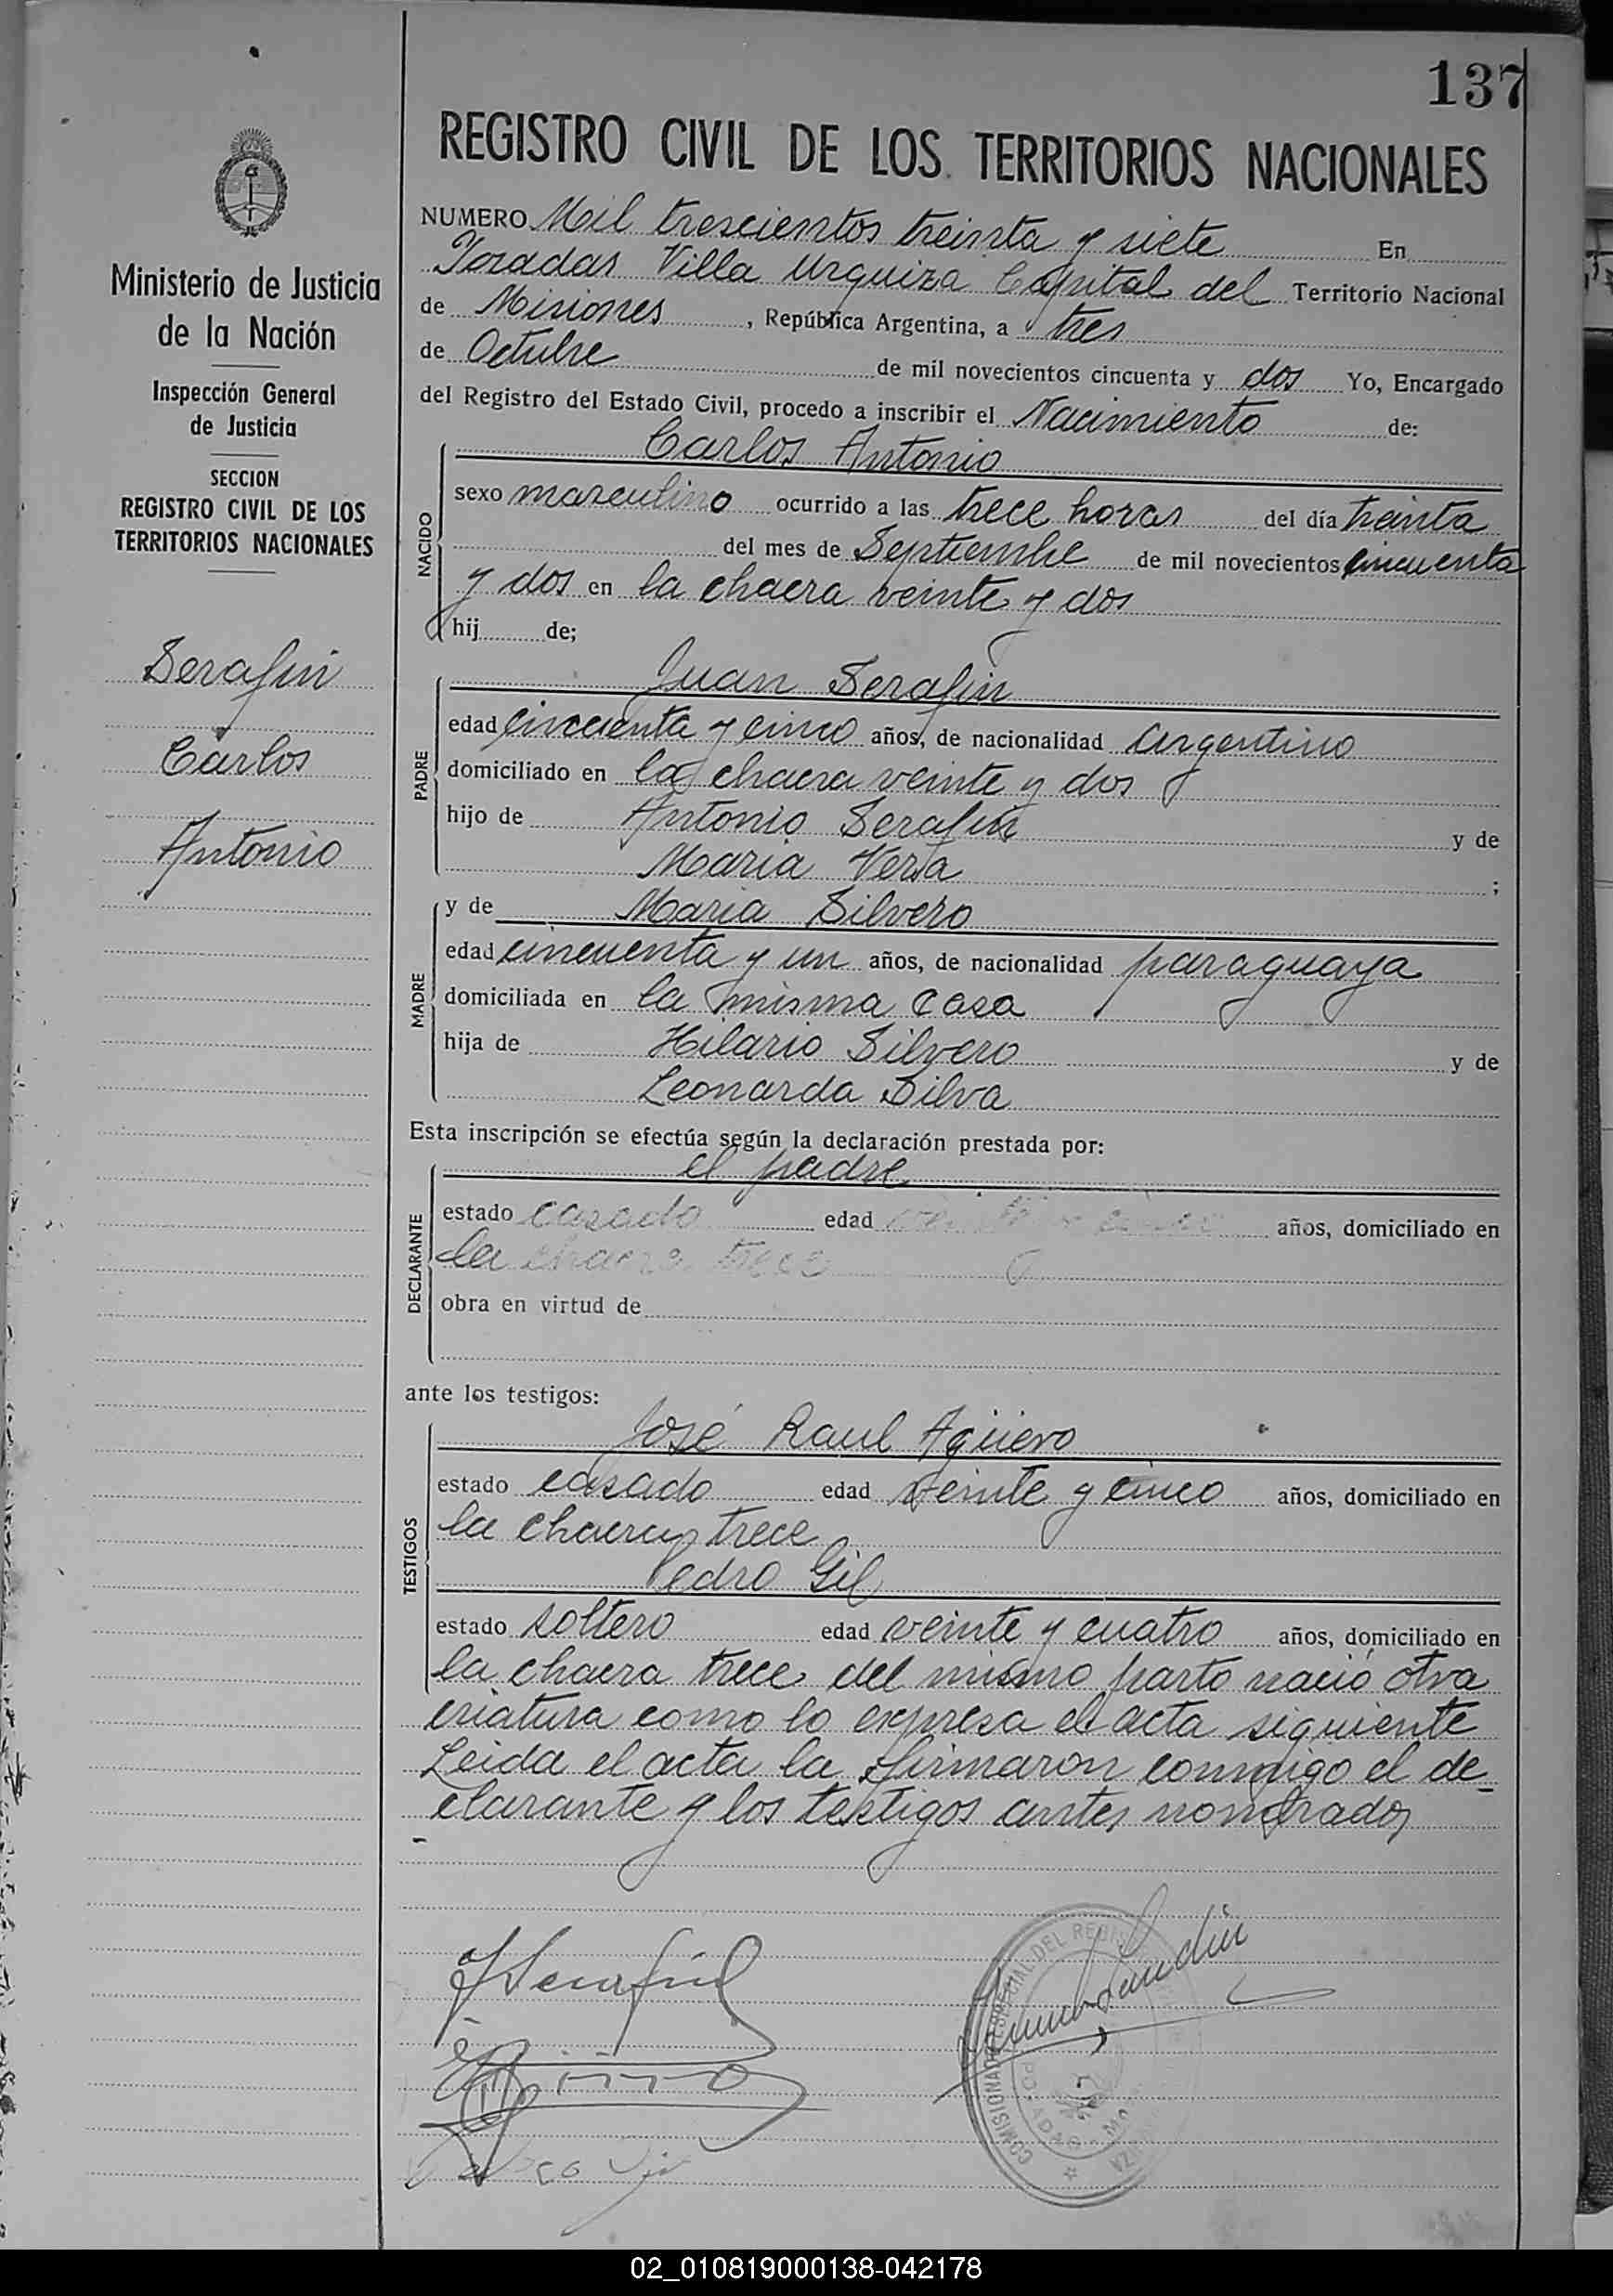 137
REGISTRO CIVIL DE LOS TERRITORIOS NACIONALES
Ministerio de Justicia
de la Nación
Inspección General
de Justicia
SECCION
REGISTRO CIVIL DE LOS
TERRITORIOS NACIONALES
Serafin
Carlos
Antonio
NUMERO Mil trescientos treinta y siete En
Posadas Villa Urquiza Capital del Territorio Nacional
de Misiones, República Argentina, a tres
de Octubre de mil novecientos cincuenta y dos Yo, Encargado
del Registro del Estado Civil, procedo a inscribir el Nacimiento de:
NACIDO
Carlos Antonio
sexo masculino ocurrido a las trece horas del día treinta
del mes de Septiembre de mil novecientos cincuenta
y dos en la chacra veinte y dos
hij de;
PADRE
Juan Serafin
edad cincuenta y cinco años, de nacionalidad argentino
domiciliado en la chacra veinte y dos
hijo de Antonio Serafin y de
Maria Vera;
MADRE
y de Maria Silvero
edad cincuenta y un años, de nacionalidad paraguaya
domiciliada en la misma casa
hija de Hilario Silvero y de
Leonarda Silva
Esta inscripción se efectúa según la declaración prestada por:
DECLARANTE
el padre
estado casado edad veinte y cinco años, domiciliado en
la chacra trece
obra en virtud de
ante los testigos:
TESTIGOS
José Raul Agüero
estado casado edad veinte y cinco años, domiciliado en
la chacra trece
Pedro Gil
estado soltero edad veinte y cuatro años, domiciliado en
la chacra trece del mismo parto nació otra
criatura como lo expresa el acta siguiente
Leida el acta la firmaron conmigo el de-
clarante y los testigos antes nombrados
J Serafin
02_010819000138-042178